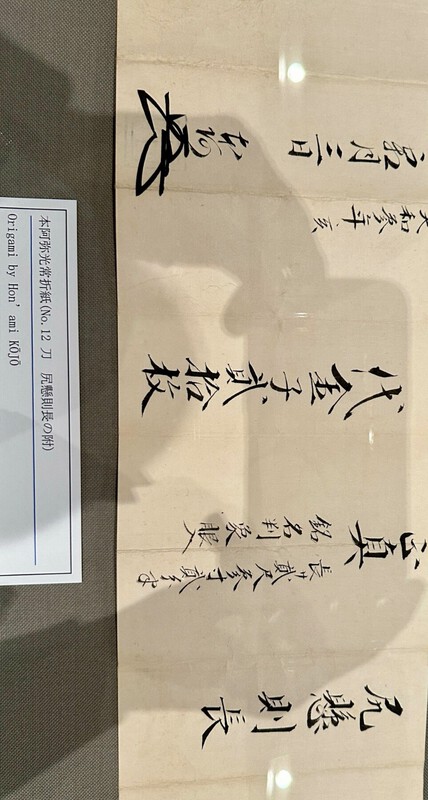 尻懸則長
正真
長貳尺参寸貳分半
象眼入
代金子貳拾枚
天和参年亥
月三日
本阿
本阿弥光常折紙(No.12 刀 尻懸則長の附)
Origami by Hon'ami KŌJŌ